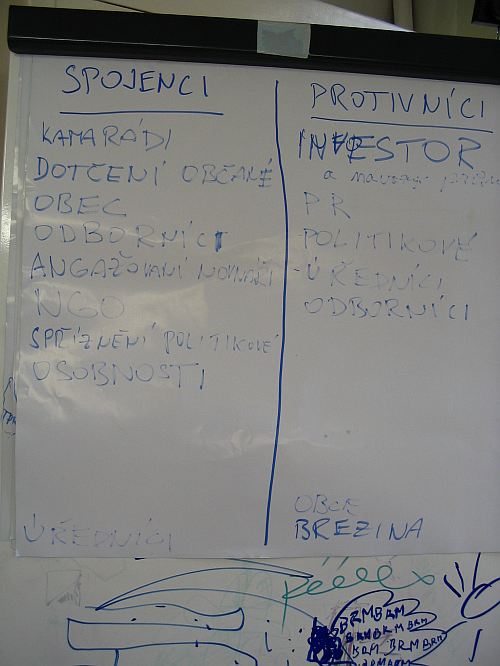 SPOJENCI
KAMARÁDI
DOTČENÍ OBČANÉ
OBEC
ODBORNÍCI
ANGAŽOVANÍ NOVINÁŘI
NGO
SPŘÍZNĚNÍ POLITIKOVÉ
OSOBNOSTI
ÚŘEDNÍCI
PROTIVNÍCI
INVESTOR
a
PR
POLITIKOVÉ
ÚŘEDNÍCI
ODBORNÍCI
OBCE
BREZINA
BRMBAM
BRM
BRMBRM